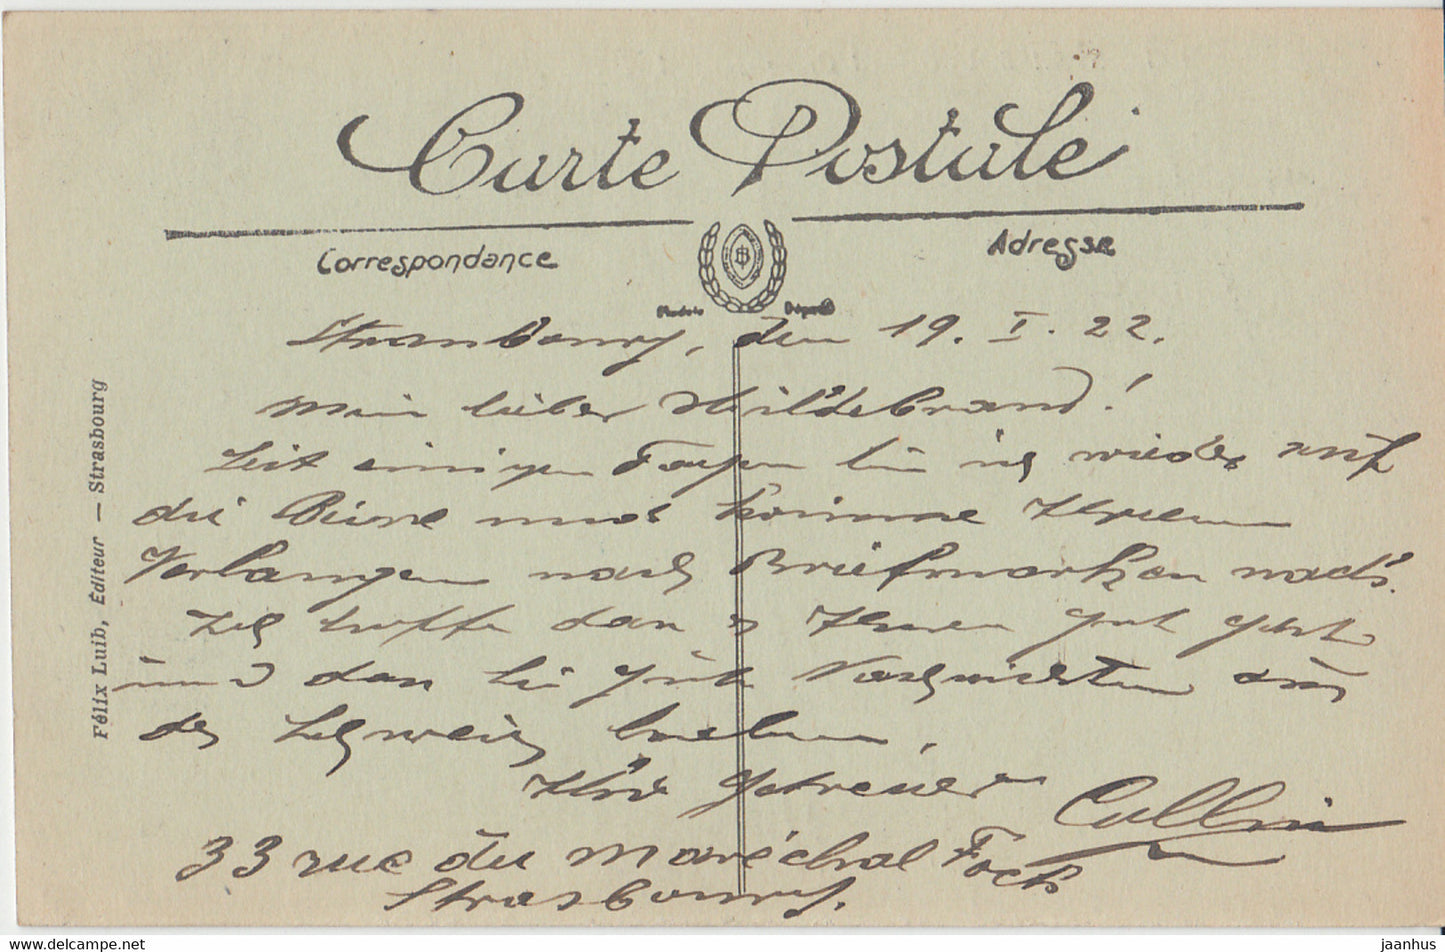 Carte Postale
Correspondance
Adresse
Modèle Déposé
B
Strassbourg, den 19. I. 22.
Mein lieber Hildebrand!
Seit einigen Tagen bin ich wieder auf
die Beine und komme Ihrem
Verlangen nach Briefmarken nach.
Ich hoffe dass es Ihnen gut geht
und dass Sie gute Nachrichten aus
der Schweiz haben.
Ihr getreuer Collin
33 rue du Maréchal Foch
Strasbourg.
Félix Luib, Éditeur — Strasbourg
jaanhus
www.delcampe.net